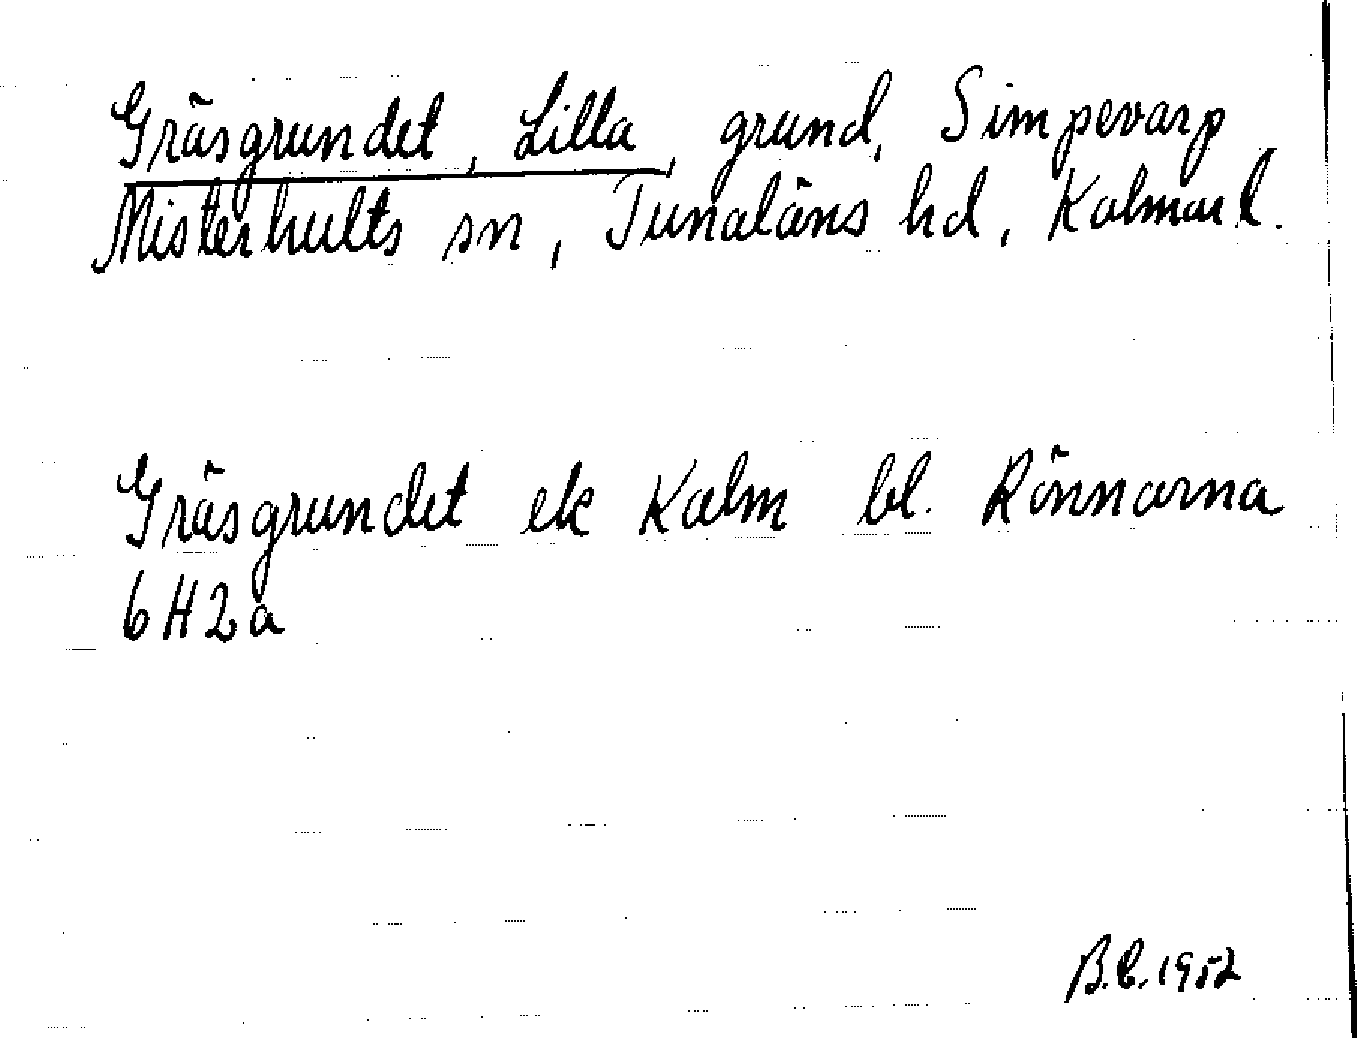 Gräsgrundet, Lilla, grund, Simpevarp,
Misterhults sn, Tunaläns hd, Kalmar l.
Gräsgrundet ek Kalm bl. Rönnarna
6H2a
B.C. 1952